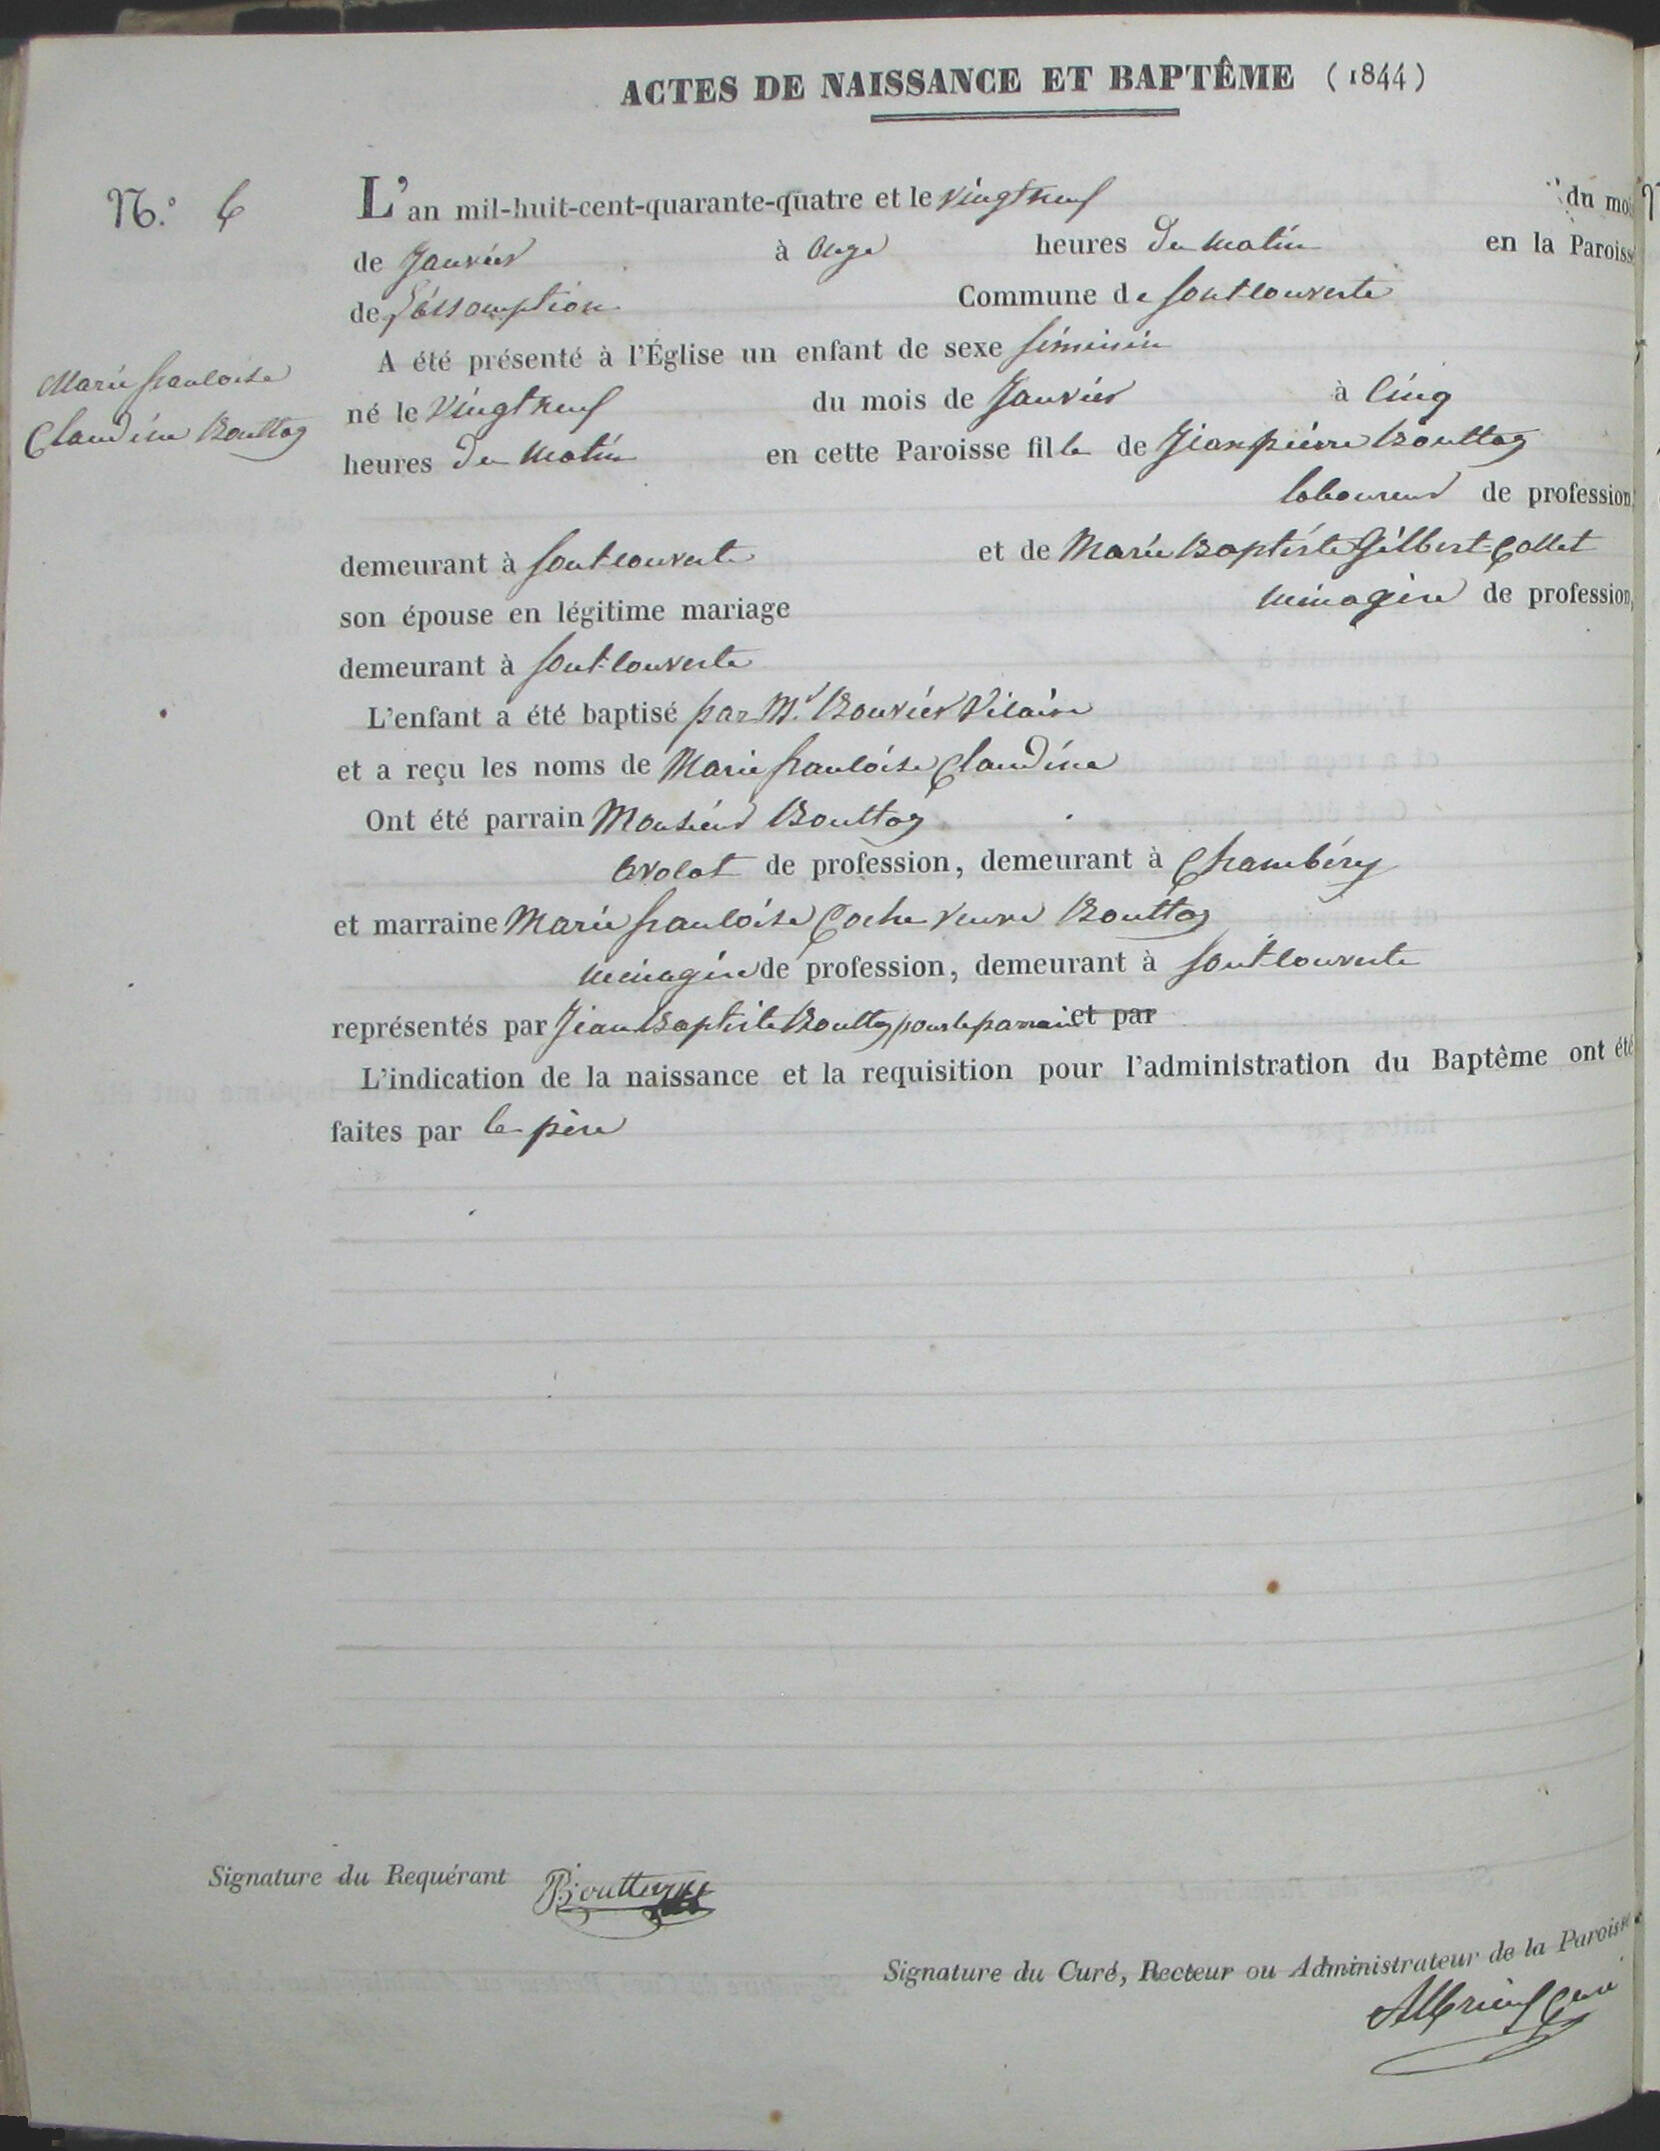 ACTES DE NAISSANCE ET BAPTÊME (1844)
N.° 6
L'an mil-huit-cent-quarante-quatre et le vingt neuf du mois
de Janvier à onze heures du matin en la Paroisse
de l'assomption Commune de font couverte
A été présenté à l'Église un enfant de sexe féminin
Marie françoise
Claudine Bouttaz
né le vingt neuf du mois de Janvier à cinq
heures du matin en cette Paroisse fille de Jean pierre Bouttaz
laboureur de profession,
demeurant à font couverte et de Marie Baptiste Gilbert-Collet
son épouse en légitime mariage ménagère de profession,
demeurant à font couverte
L'enfant a été baptisé par Mr Bouvier Vicaire
et a reçu les noms de Marie françoise Claudine
Ont été parrain Monsieur Bouttaz
avocat de profession, demeurant à Chambéry
et marraine Marie françoise Coche veuve Bouttaz
ménagère de profession, demeurant à font couverte
représentés par Jean Baptiste Bouttaz pour le parrain et par
L'indication de la naissance et la requisition pour l'administration du Baptême ont été
faites par le père
Signature du Requérant Bouttaz
Signature du Curé, Recteur ou Administrateur de la Paroisse
curé